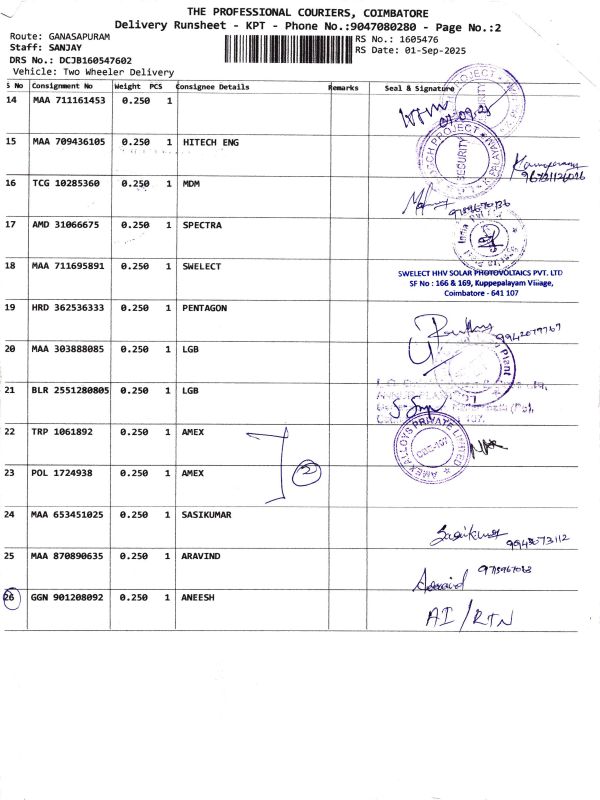 THE PROFESSIONAL COURIERS, COIMBATORE
Delivery Runsheet - KPT - Phone No.:9047080280 - Page No.:2
Route: GANASAPURAM
RS No.: 1605476
Staff: SANJAY
RS Date: 01-Sep-2025
DRS No.: DCJB160547602
Vehicle: Two Wheeler Delivery
S No Consignment No Weight PCS Consignee Details Remarks Seal & Signature
14 MAA 711161453 0.250 1
15 MAA 709436105 0.250 1 HITECH ENG
SECURITY
16 TCG 10285360 0.250 1 MDM
17 AMD 31066675 0.250 1 SPECTRA
18 MAA 711695891 0.250 1 SWELECT
SWELECT HHV SOLAR PHOTOVOLTAICS PVT. LTD
SF No : 166 & 169, Kuppepalayam Village,
Coimbatore - 641 107
19 HRD 362536333 0.250 1 PENTAGON
9942079767
20 MAA 303888085 0.250 1 LGB
21 BLR 2551280805 0.250 1 LGB
22 TRP 1061892 0.250 1 AMEX
AMEX ALLOYS PRIVATE LIMITED
23 POL 1724938 0.250 1 AMEX
2
24 MAA 653451025 0.250 1 SASIKUMAR
Sasikumar
25 MAA 870890635 0.250 1 ARAVIND
Aravind
26 GGN 901208092 0.250 1 ANEESH
AI/RTN